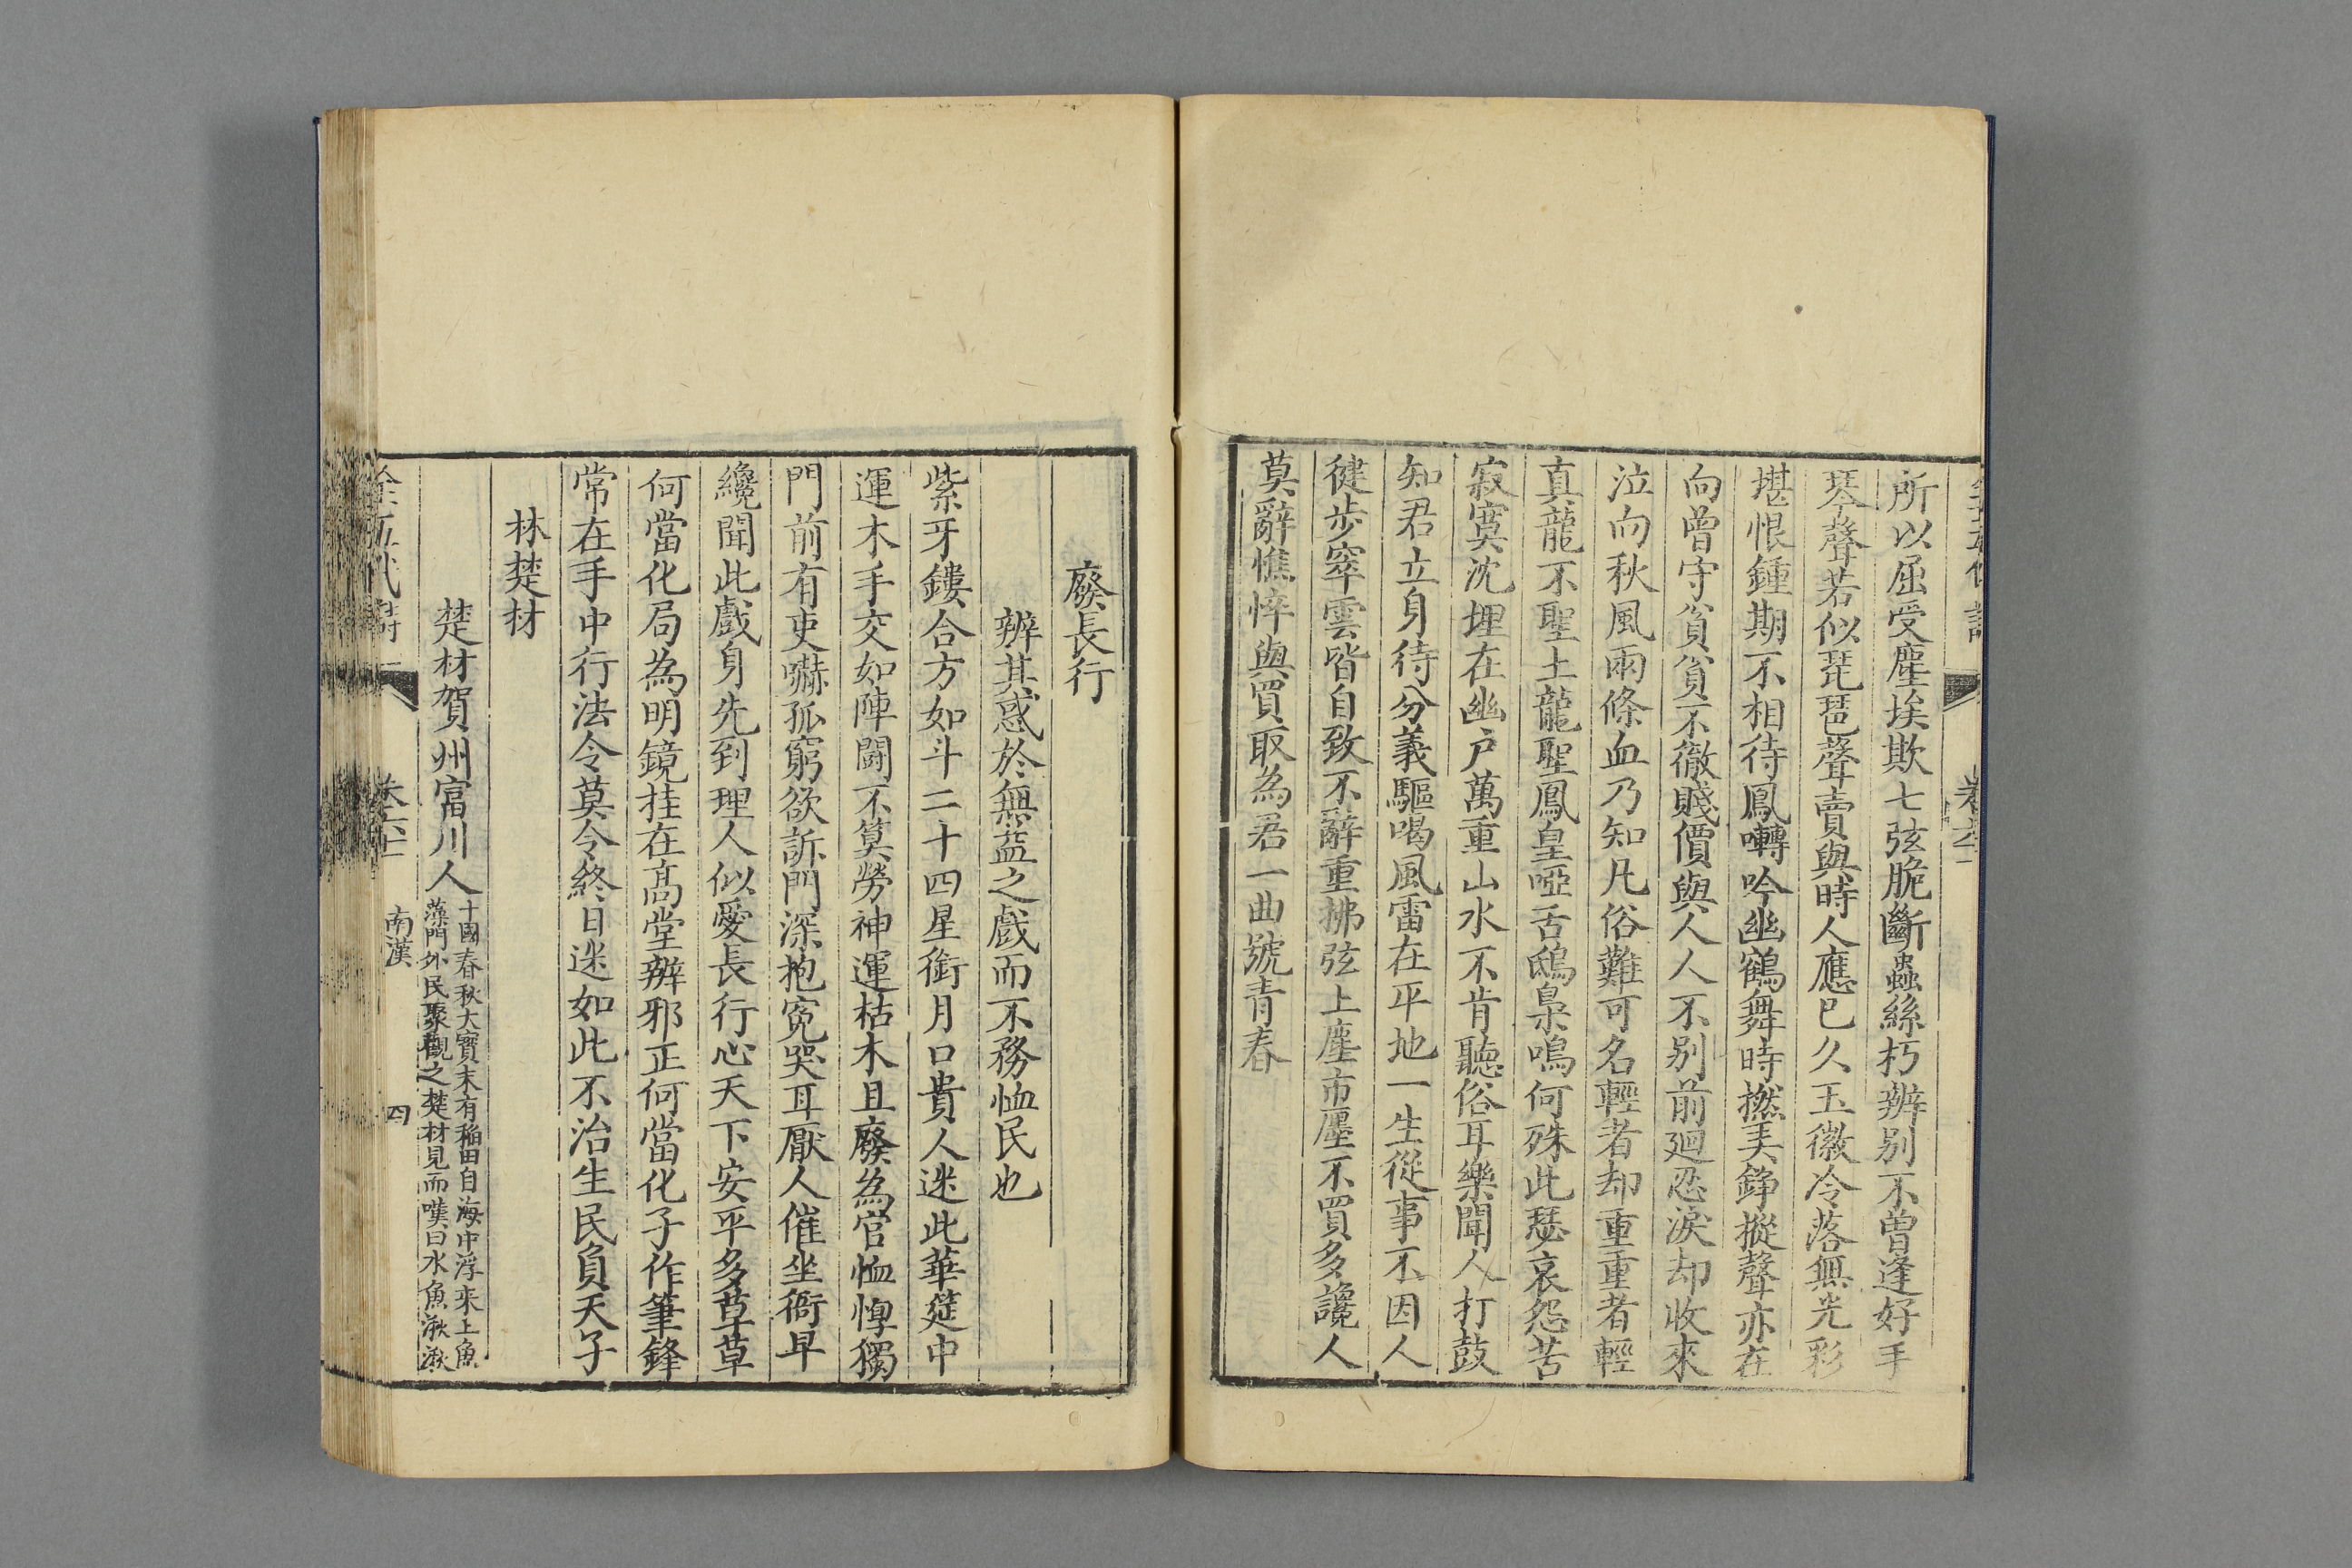 所以屈受塵埃欺七弦脆斷蟲絲朽辨别不曾逢好手
琴聲若似琵琶聲賣與時人應已久玉徽冷落無光彩
堪恨鍾期不相待鳳囀吟幽鶴舞時撚美錚摐聲亦在
向曾守貧貧不徹賤價與人人不别前廻忍淚却收來
泣向秋風兩條血乃知凡俗難可名輕者却重重者輕
真龍不聖土龍聖鳳皇啞舌鴟梟鳴何殊此瑟哀怨苦
寂寞沈埋在幽户萬重山水不肯聽俗耳樂聞人打鼓
知君立身待分義驅喝風雷在平地一生從事不因人
健步窣雲皆自致不辭重拂弦上塵市廛不買多讒人
莫辭憔悴與買取為君一曲號青春
廢長行
辨其惑於無益之戲而不務恤民也
紫牙鏤合方如斗二十四星銜月口貴人迷此華筵中
運木手交如陣鬬不算勞神運枯木且廢為官恤惸獨
門前有吏嚇孤窮欲訴門深抱寃哭耳厭人催坐衙早
纔聞此戲身先到理人似愛長行心天下安平多草草
何當化局為明鏡挂在高堂辨邪正何當化子作筆鋒
常在手中行法令莫令終日迷如此不治生民負天子
林楚材
楚材賀州富川人
十國春秋大寶末有稲田自海中浮來上魚
藻門外民聚觀之楚材見而嘆曰水魚湫湫
全五代詩
南漢
四